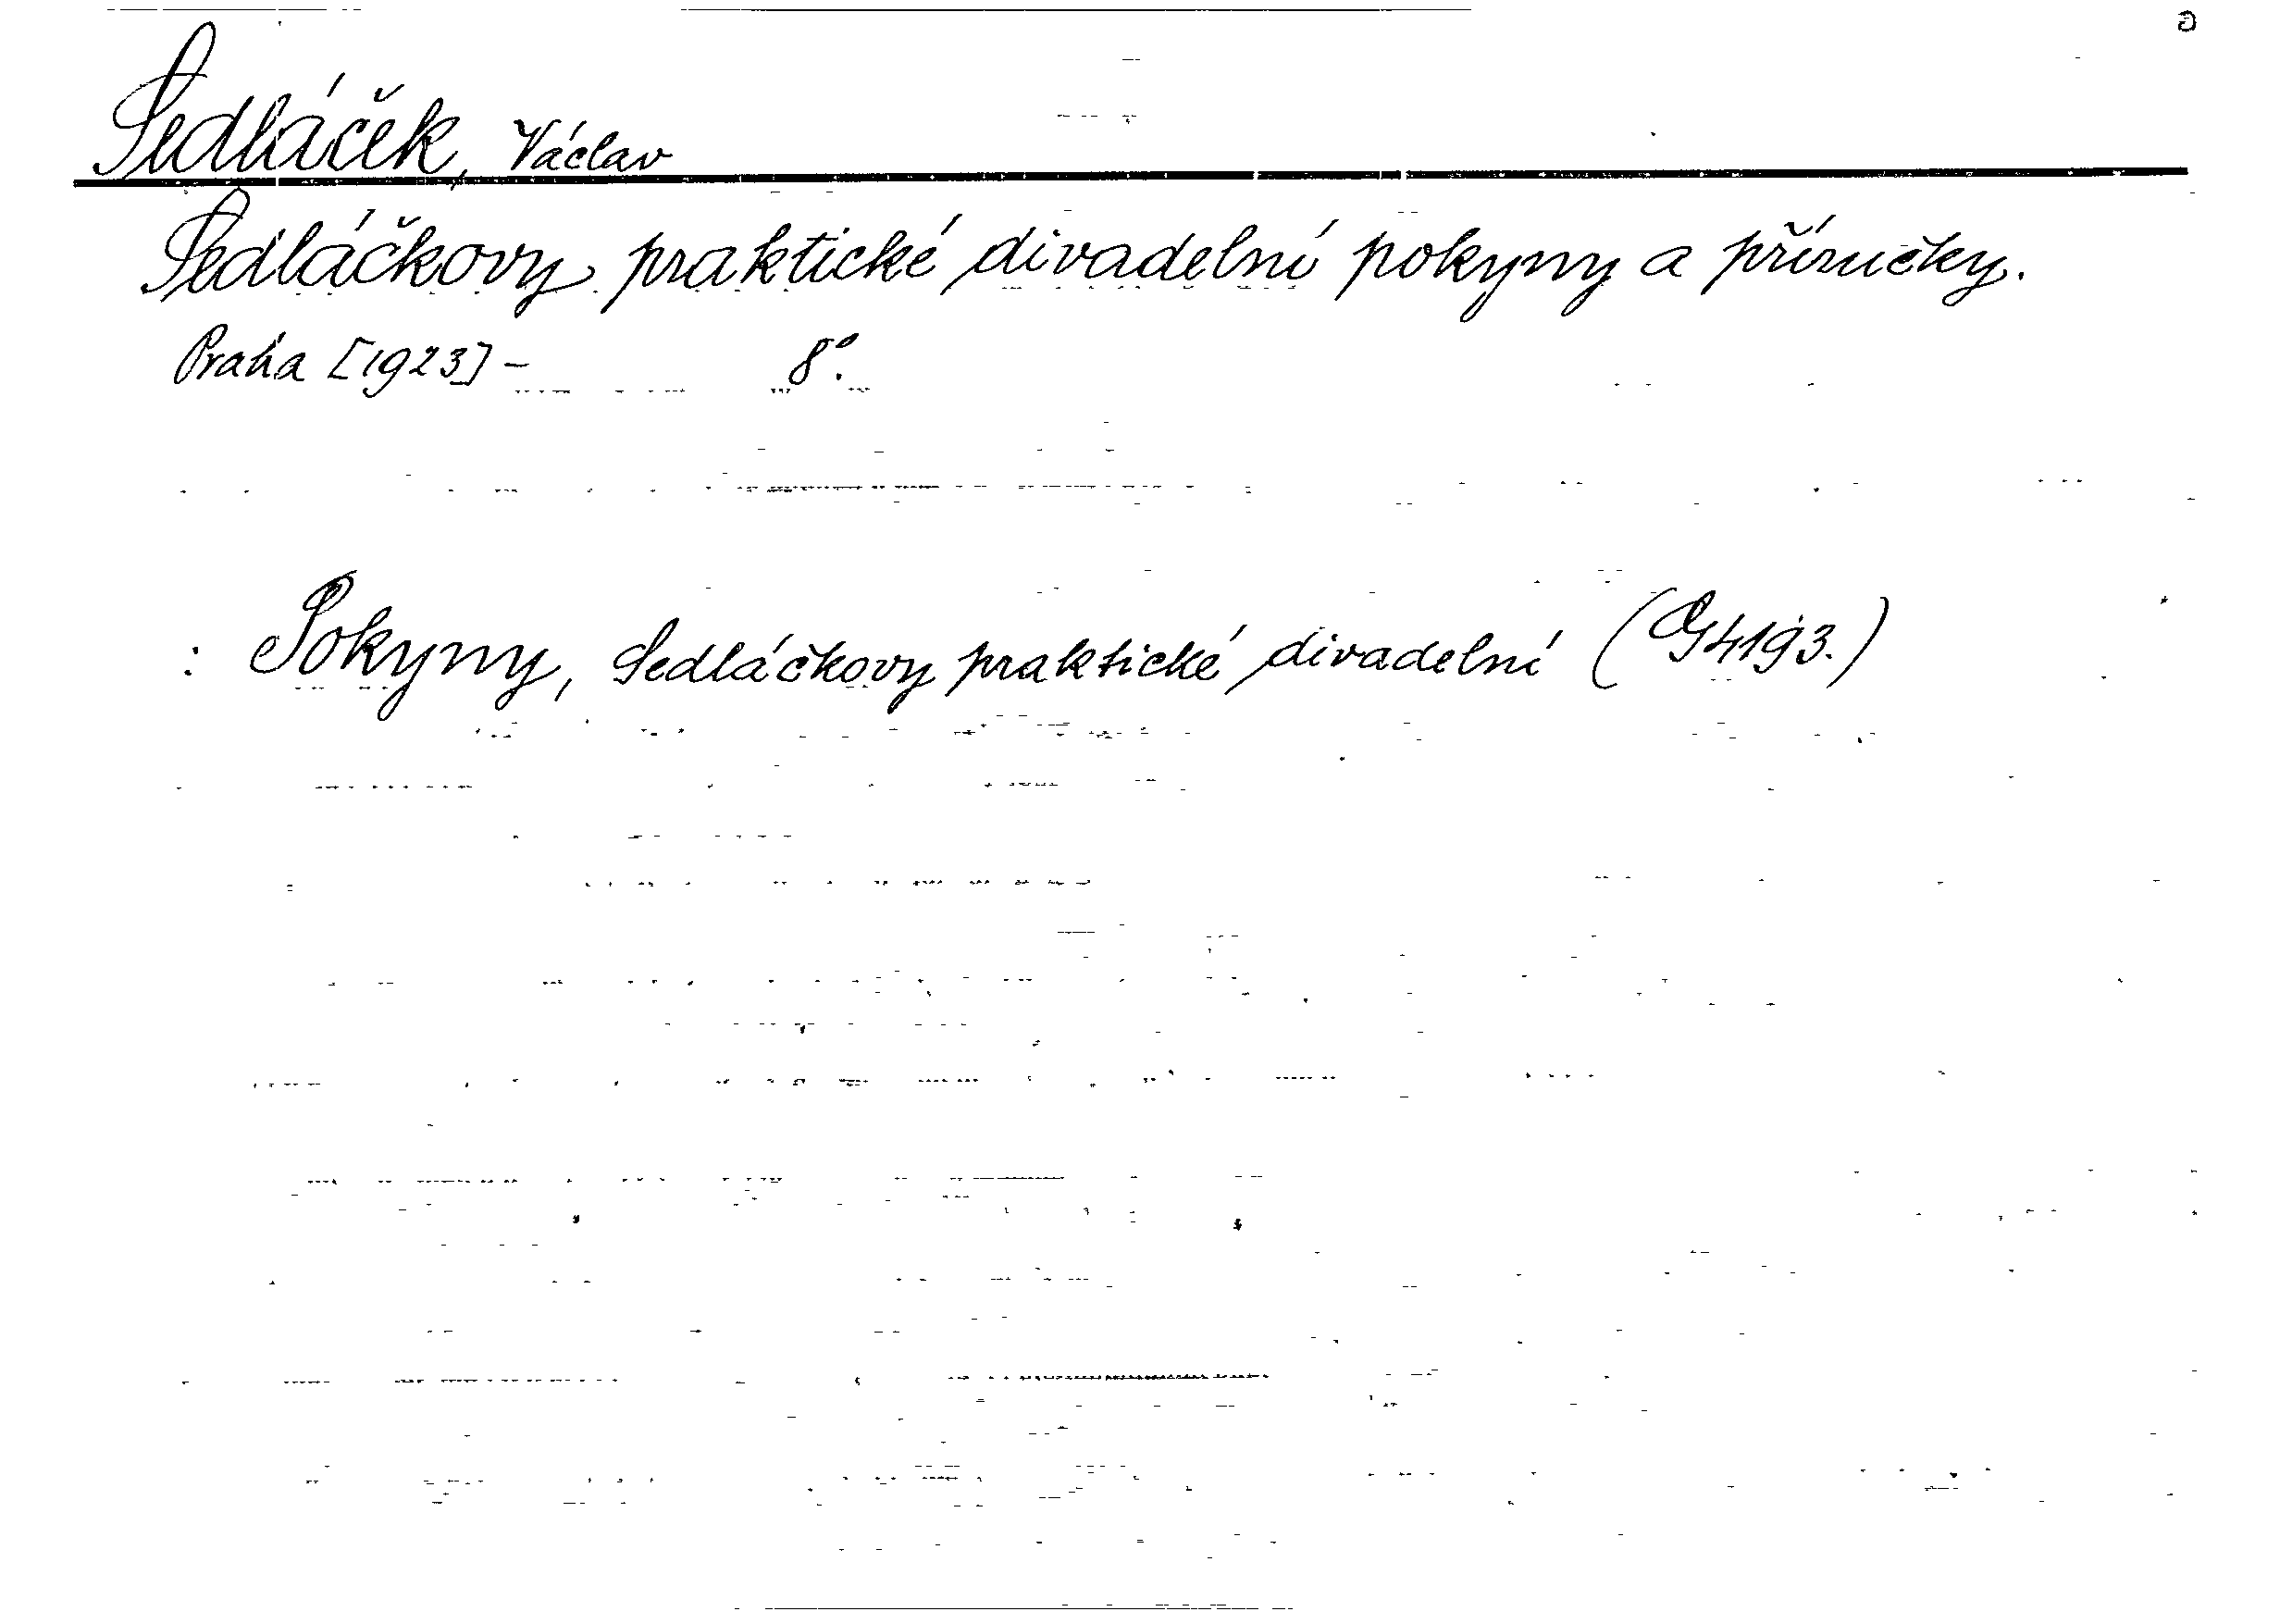 Sedláček, Václav
Sedláčkovy praktické divadelní pokyny a příručky.
Praha [1923] - 8°.
: Pokyny, Sedláčkovy praktické divadelní (G4193.)